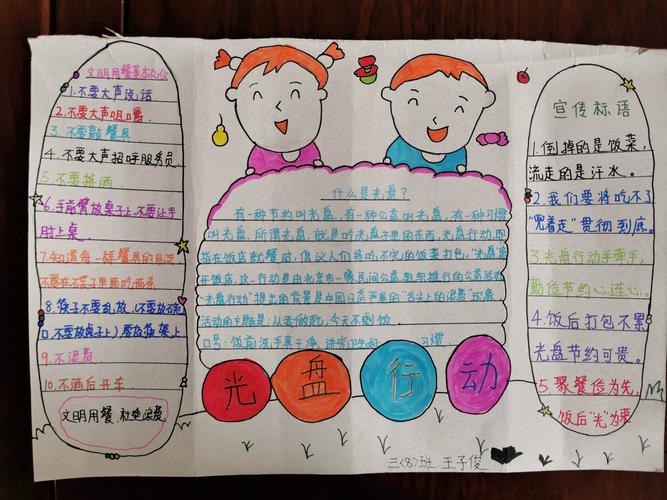 文明用餐基本礼仪
1.不要大声说话
2.不要大声咀嚼
3.不要敲餐具
4.不要大声招呼服务员
5.不要拼酒
6.手商餐放桌子上,不要让手
肘上桌
7.知道每一样餐具的用法
不要在不菜子里面吃面条
8.筷子不要乱放,(不要放在
口,不要放桌子上)要放筷架上
9.不浪费
10.不酒后开车
文明用餐,杜绝浪费
什么是光盘?
有一种节约叫光盘,有一种公益叫光盘,有一种习惯
叫光盘,所谓光盘,就是吃光盘子里的东西,光盘行动,即
指在饭店就餐时,倡议人们将吃不完的饭菜打包,"光盘"离
开饭店,这一行动是由北京市一家民间公益组织推行的公益活动
"光盘行动"提出的背景是中国日益严重的"舌尖上的浪费"现象
活动的主题是:从我做起,今天不剩饭
口号:饭前洗手真干净,讲究卫生 习惯
光盘行动
三<8>班 王子俊
宣传标语
1.倒掉的是饭菜,
流走的是汗水。
2.我们要将吃不了
"兜着走"贯彻到底。
3光盘行动手牵手,
勤俭节约心连心。
4.饭后打包不累
光盘节约可贵。
5聚餐俭为先,
饭后"光"为荣